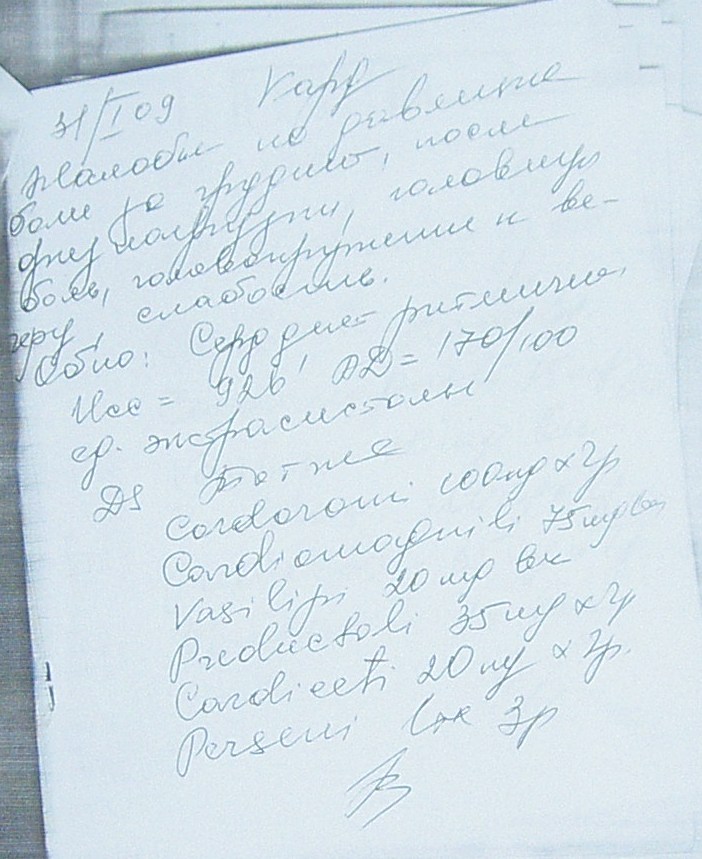 31/I 09 Кард
Жалобы на давящие
боли за грудино, после
физ нагрузки, головную
боль, головокружение к ве-
черу, слабость.
Об-но: Сердце ритмично,
Чсс = 92 в 1 АД = 170/100
ед. экстрасистолы
DS
Cordaroni 100 mg x 2р
Cardiomagnili 75 mg веч
Vasilipi 20 mg веч
Preductali 35 mg x 2р
Cardiceti 20 mg x 2р.
Perseni 1тк 3р